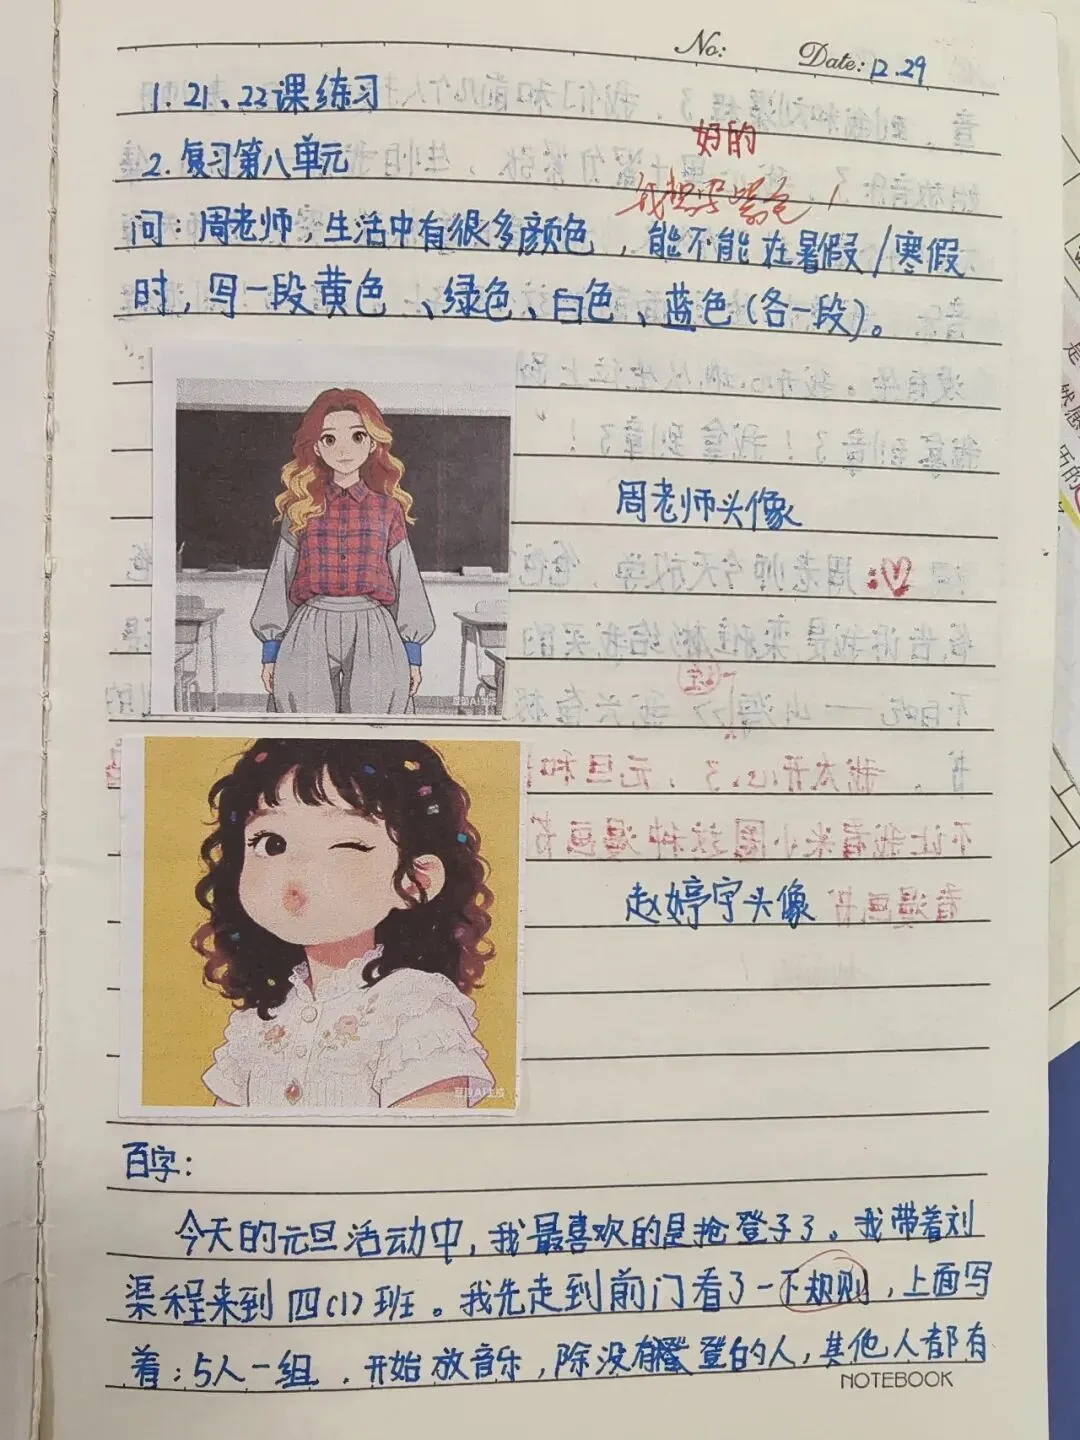 No:
Date: 12.29
1. 21、22课练习
好的
2. 复习第八单元
我想要紫色！
问：周老师，生活中有很多颜色，能不能在暑假/寒假
时，写一段黄色、绿色、白色、蓝色(各一段)。
周老师头像
豆包AI生成
赵婷宇头像
豆包AI生成
百字：
今天的元旦活动中，我最喜欢的是抢登子了。我带着刘
渠程来到四(1)班。我先走到前门看了一下规则，上面写
着：5人一组．开始放音乐，除没有登的人，其他人都有
NOTEBOOK